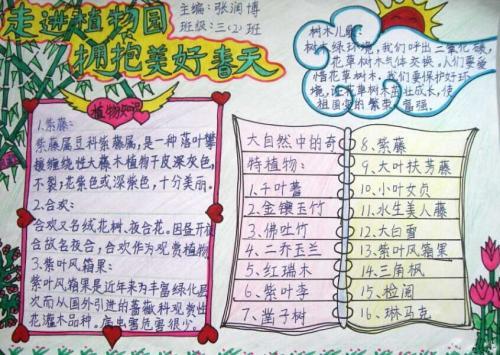 走进植物园
拥抱美好春天
主编：张润博
班级：三(2)班
树木儿歌：
树木绿环境，我们呼出二氧化碳，
花草树木气体交换。人们要爱
惜花草树木。我们要保护好环
境，让花草树木茁壮成长，使
祖国变的繁荣富强。
植物知识
1.紫藤：
紫藤属豆科紫藤属，是一种落叶攀
援缠绕性大藤木植物干皮深灰色，
不裂；花紫色或深紫色，十分美丽。
2.合欢：
合欢又名绒花树、夜合花。因昼开夜
合故名夜合，合欢作为观赏植物
3.紫叶风箱果：
紫叶风箱果是近年来为丰富绿化层
次而从国外引进的蔷薇科观赏出
花灌木品种。病虫害危害很少。
大自然中的奇
特植物：
1.千叶蓍
2.金镶玉竹
3、佛吐竹
4.二乔玉兰
5、红瑞木
6、紫叶李
7、凿子树
8、紫藤
9、大叶扶芳藤
10、小叶女贞
11、水生美人藤
12、大白雪
13、紫叶风箱果
14、三角枫
15、检阅
16、琳马克